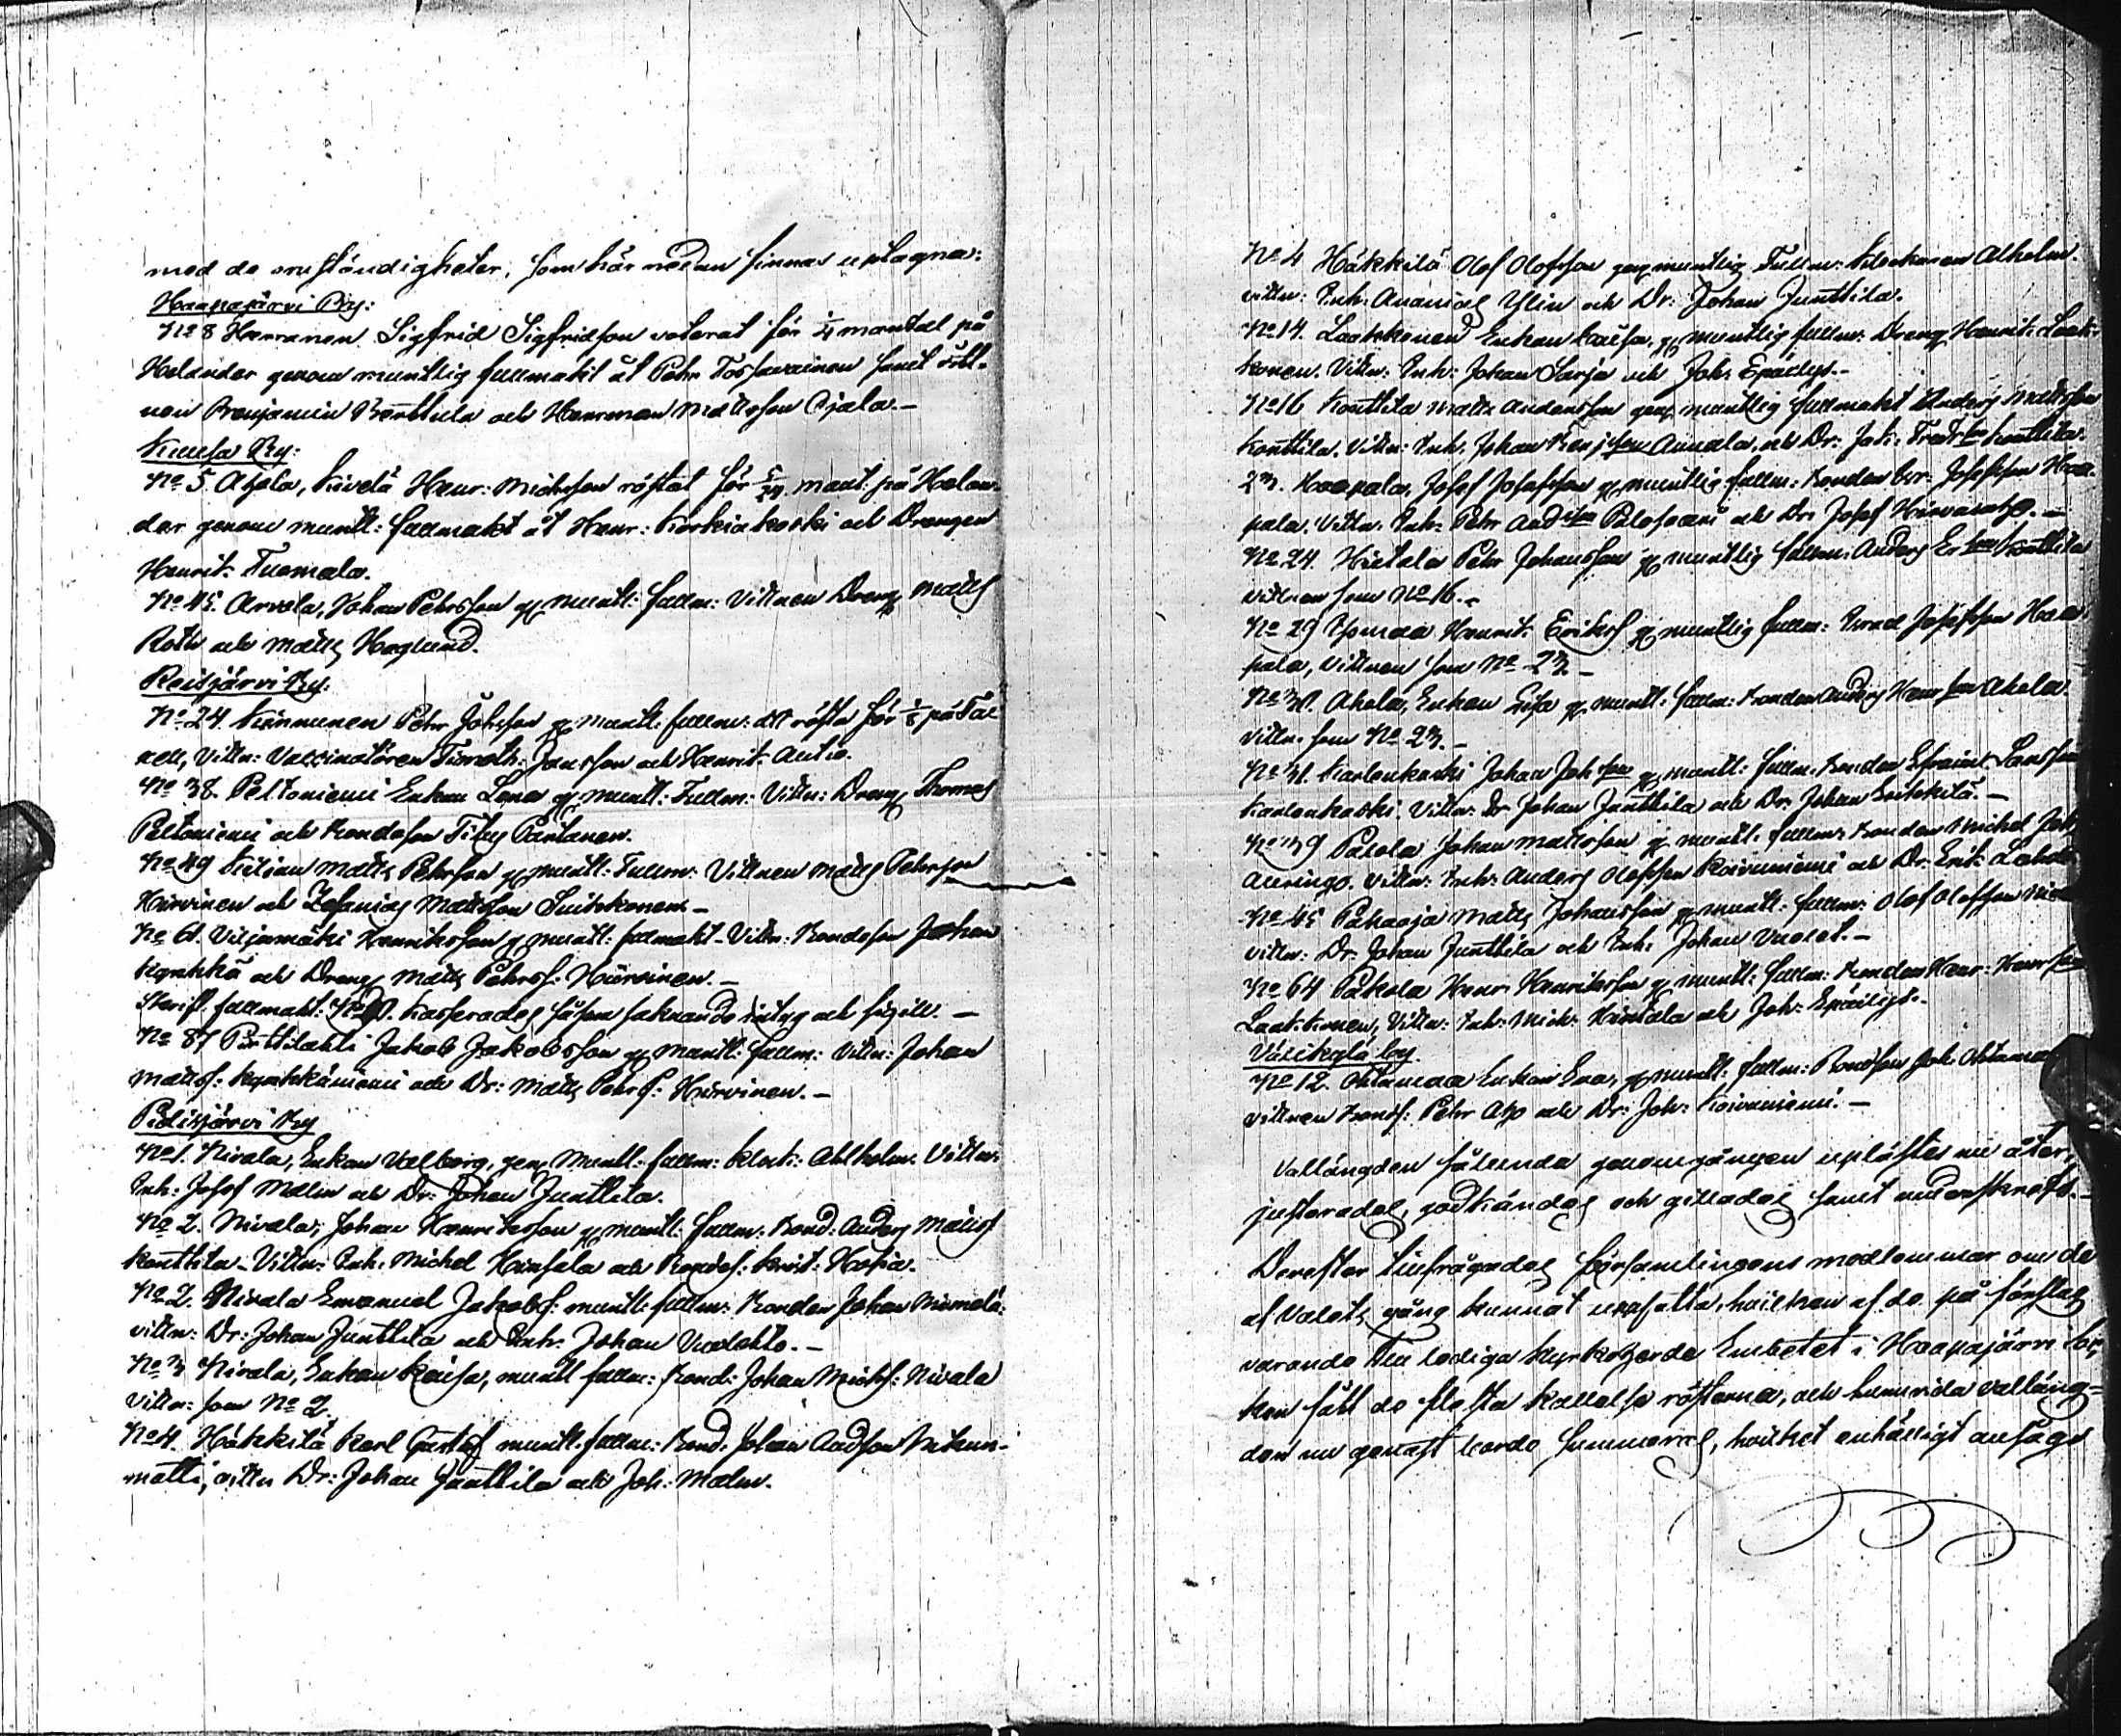 med de omständigheter, som här nedan finnas uptagna:
Haapajärvi By:
No 8 Herranen Sigfrid Sigfridsson voterat för 1/4 mantal på
Helander genom muntlig fullmakt åt Pehr Tossavainen samt vitt-
nen Benjamin Benttula och Herrman Mattsson Ojala.—
Kuusa By:
No 5. Ahola, Kivelä Henr: Michsson röstat för 5/24 mant. på Helan-
der genom muntl: fullmakt åt Henr: Korkiakoski och Drengen
Henrik Tuomala.
No 45. Arvola, Johan Pehrsson g muntl: fullm: Vittnen Dreng Matts
Roth och Matts Haglund.
Reisjärvi By:
No 24. Kinnunen Pehr Johsson g muntl. fullm: att rösta för 1/8 på Fal
nell, Vittn: Vaccinatören Timoth: Jansson och Henrik Autio.
No 38. Peltoniemi Enkan Lena g muntl: Fullm: Vittn: Dreng Thomas
Peltoniemi och Bondeson Titus Pantanen.
No 49 Kilian Matts Pehrsson g muntl: Fullm: Vittnen Matts Pehrsson
Hirvinen och Zefanias Mattsson Suikkonen.—
No 61. Viljamäki Henriksson g muntl: fullmakt - Vittn: Bondeson Johan
Kyrkkä och Dreng Matts Pehrss: Hirvinen.—
Skrifl. fullmakt: No kasserades såsom saknande intyg och sigill.—
No 87 Pirttilahti Jakob Jakobsson g muntl: fullm: Vittn: Johan
Matts: Kyrkkäniemi och Dr: Matts Pehrs: Hirvinen.—
Pidisjärvi By
No 1. Nivala, Enkan Valborg, gen muntl: fullm: Klock: Ahlholm. Vittn:
Inh: Josef Malm och Dr: Johan Junttila.
No 2. Nivala, Johan Henriksson g muntl: fullm: Bond: Anders Matts
Konttila - Vittn: Inh: Michel Hinsala och Bondes: Krist: Hosia.
No 2. Nivala Emanuel Jakobs: muntl: fullm: Bonden Johan Niemelä.
vittn: Dr: Johan Junttila och Inh: Johan Vuolehto.—
No 3 Nivala, Enkan Kaisa, muntl fullm: Bond: Johan Michs: Nivala
Vittn: som No 2.
No 4. Häkkilä Karl Gustaf muntl: fullm: Bond: Johan Andsson Niskan-
matti, vittn Dr: Johan Junttila och Joh: Malm.
No 4 Häkkilä Olof Olofsson gen muntlig Fullm: Klockaren Alholm.
vittn: Inh: Ananias Ylin och Dr: Johan Junttila.
No 14. Laakkonen Enkan Kaisa, g muntlig fullm: Dreng Henrik Laak-
konen. Vittn: Inh: Johan Sarja och Joh: Epäilys.—
No 16 Konttila Matts Andersson gen muntlig fullmakt Anders Mattsson
Konttila. Vittn: Inh. Johan Benjson Annala, och Dr: Jak: Fredrson Konttila.
23. Haapala, Josef Josefsson g muntlig fullm: Bonden Isr: Josefsson Haa-
pala. Vittn: Inh: Pehr Andsson Palosaari och Dr: Josef Hirvioja.—
No 24. Hietala Pehr Johansson g muntlig fullm: Anders Erson Konttila
vittnen som No 16.—
No 29 Ypmaa Henrik Eriks g muntlig fullm: Israel Josefsson Haa
pala, vittnen som No 23.—
No 30. Ahola, Enkan Lisa g muntl: fullm: Bonden Anders Henrson Ahola
Vittn. som No 23.—
No 31. Karlenkoski Johan Johsson g muntl: fullm. Bonden Efraim Larsson
Karlenkoski. Vittn: Dr Johan Junttila och Dr: Johan Eerikkilä.—
No 39 Pakola Johan Mattsson g muntl. fullm: Bonden Michel Joh
Aeringo. vittn: Inh: Anders Olofsson Koivuniemi och Dr. Erik Laho
No 45 Pahaoja Matts Johansson g muntl: fullm: Olof Olofsson
vittn: Dr: Johan Junttila och Inh: Johan Vuolet.—
No 64 Pakola Henr: Henriksson g muntl: fullm: Bonden Henr: Henrsson
Laakkonen, Vittn: Inh: Mich: Hinsala och Joh: Epäilys.—
Väsikylä by.
No 12. Ohtamaa Enkan Eva, g muntl: fullm: Bondson Joh: Ohtamaa
vittnen Bonds: Pehr Aho och Dr: Joh: Koivuniemi.—
Vallängden sålunda genomgången uplästes nu åter,
justerades, godkändes och gillades samt underskrefs.—
Derefter tillfrågades församlingens medlemmar om de
af Valets gång kunnat uppfatta, hvilken af de på förslag
varande till lediga Kyrkoherde Embetet i Haapajärvi Soc
ken fått de flesta kallelse rösterna, och huruvida valläng-
den nu genast borde summeras, hvilket enhälligt ansågs